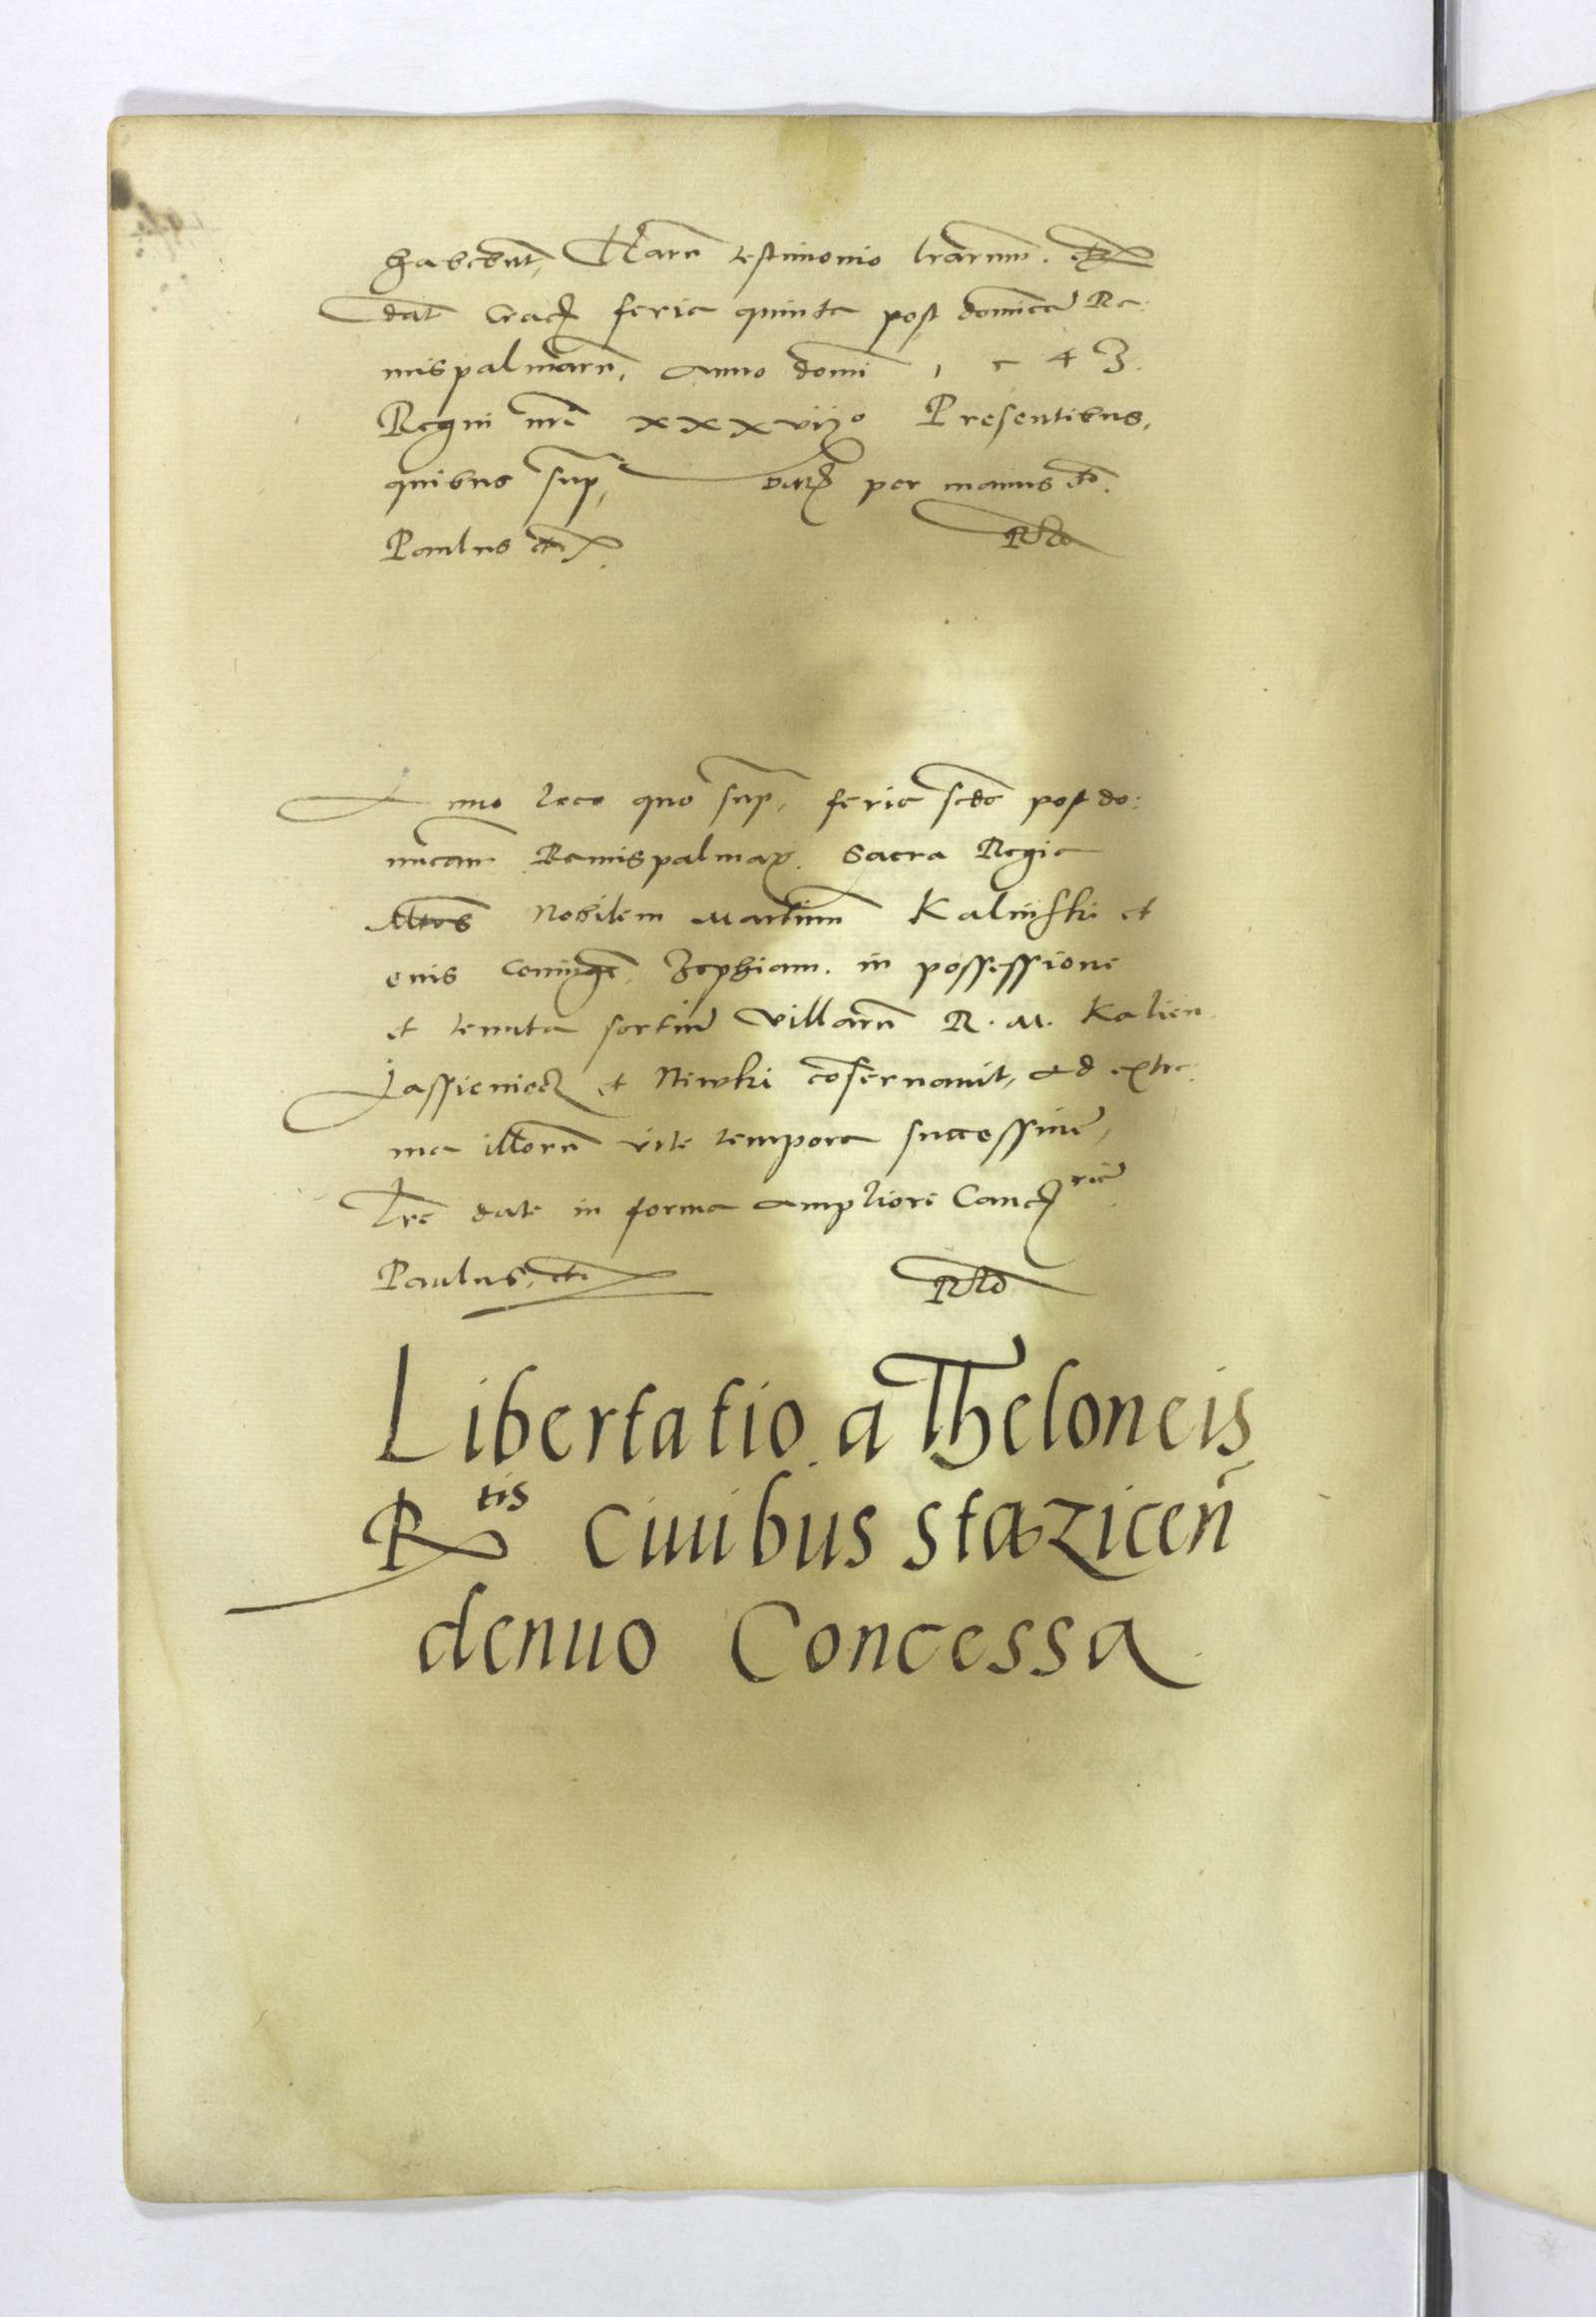 habebūt, Harū testimonio lrarum. etc
dat Crac feria quinta post dominicā Ra:
mispalmarū, anno domī 1 5 4 3.
Regni nrī xxxvijº Presentibus,
quibus sup, Dat per manus etc.
Paulus etc. Rlo
Anno loco quo sup, feria scda post do:
nicam Ramispalmaꝝ. Sacra Regia
Mtas Nobilem Martinum Kalinski et
eius coniugē, Zophiam. in possessione
et tenuta sortiū villarū R. M. Kalien
Jassieniecz et Niwki cōservauit, ad extre:
ma illorū vite tempora successiue,
Lrē date in forma ampliori Cancrie
Paulus, etc Rlo
Libertatio a Theloneis
Rtis Ciuibus staziceñ
denuo Concessa